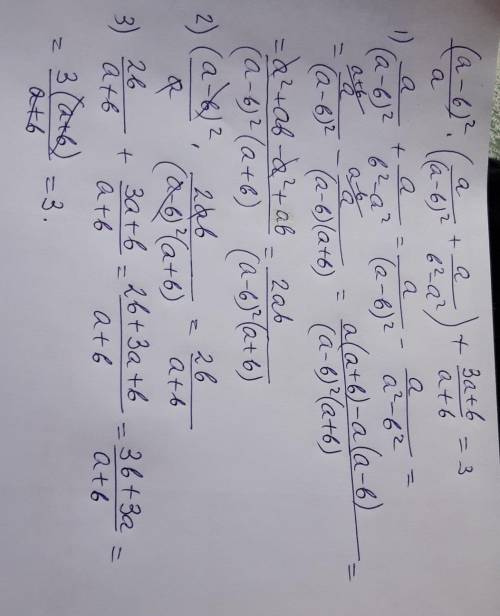 (a-b)²/a · (a/(a-b)² + a/(b²-a²)) + (3a+b)/(a+b) = 3
1) a/(a-b)² + a/(b²-a²) = a/(a-b)² - a/(a²-b²) =
= a^(a+b)/(a-b)² - a^(a-b)/((a-b)(a+b)) = (a(a+b)-a(a-b))/((a-b)²(a+b)) =
= (a²+ab-a²+ab)/((a-b)²(a+b)) = 2ab/((a-b)²(a+b))
2) (a-b)²/a · 2ab/((a-b)²(a+b)) = 2b/(a+b)
3) 2b/(a+b) + (3a+b)/(a+b) = (2b+3a+b)/(a+b) = (3b+3a)/(a+b) =
= 3(a+b)/(a+b) = 3.